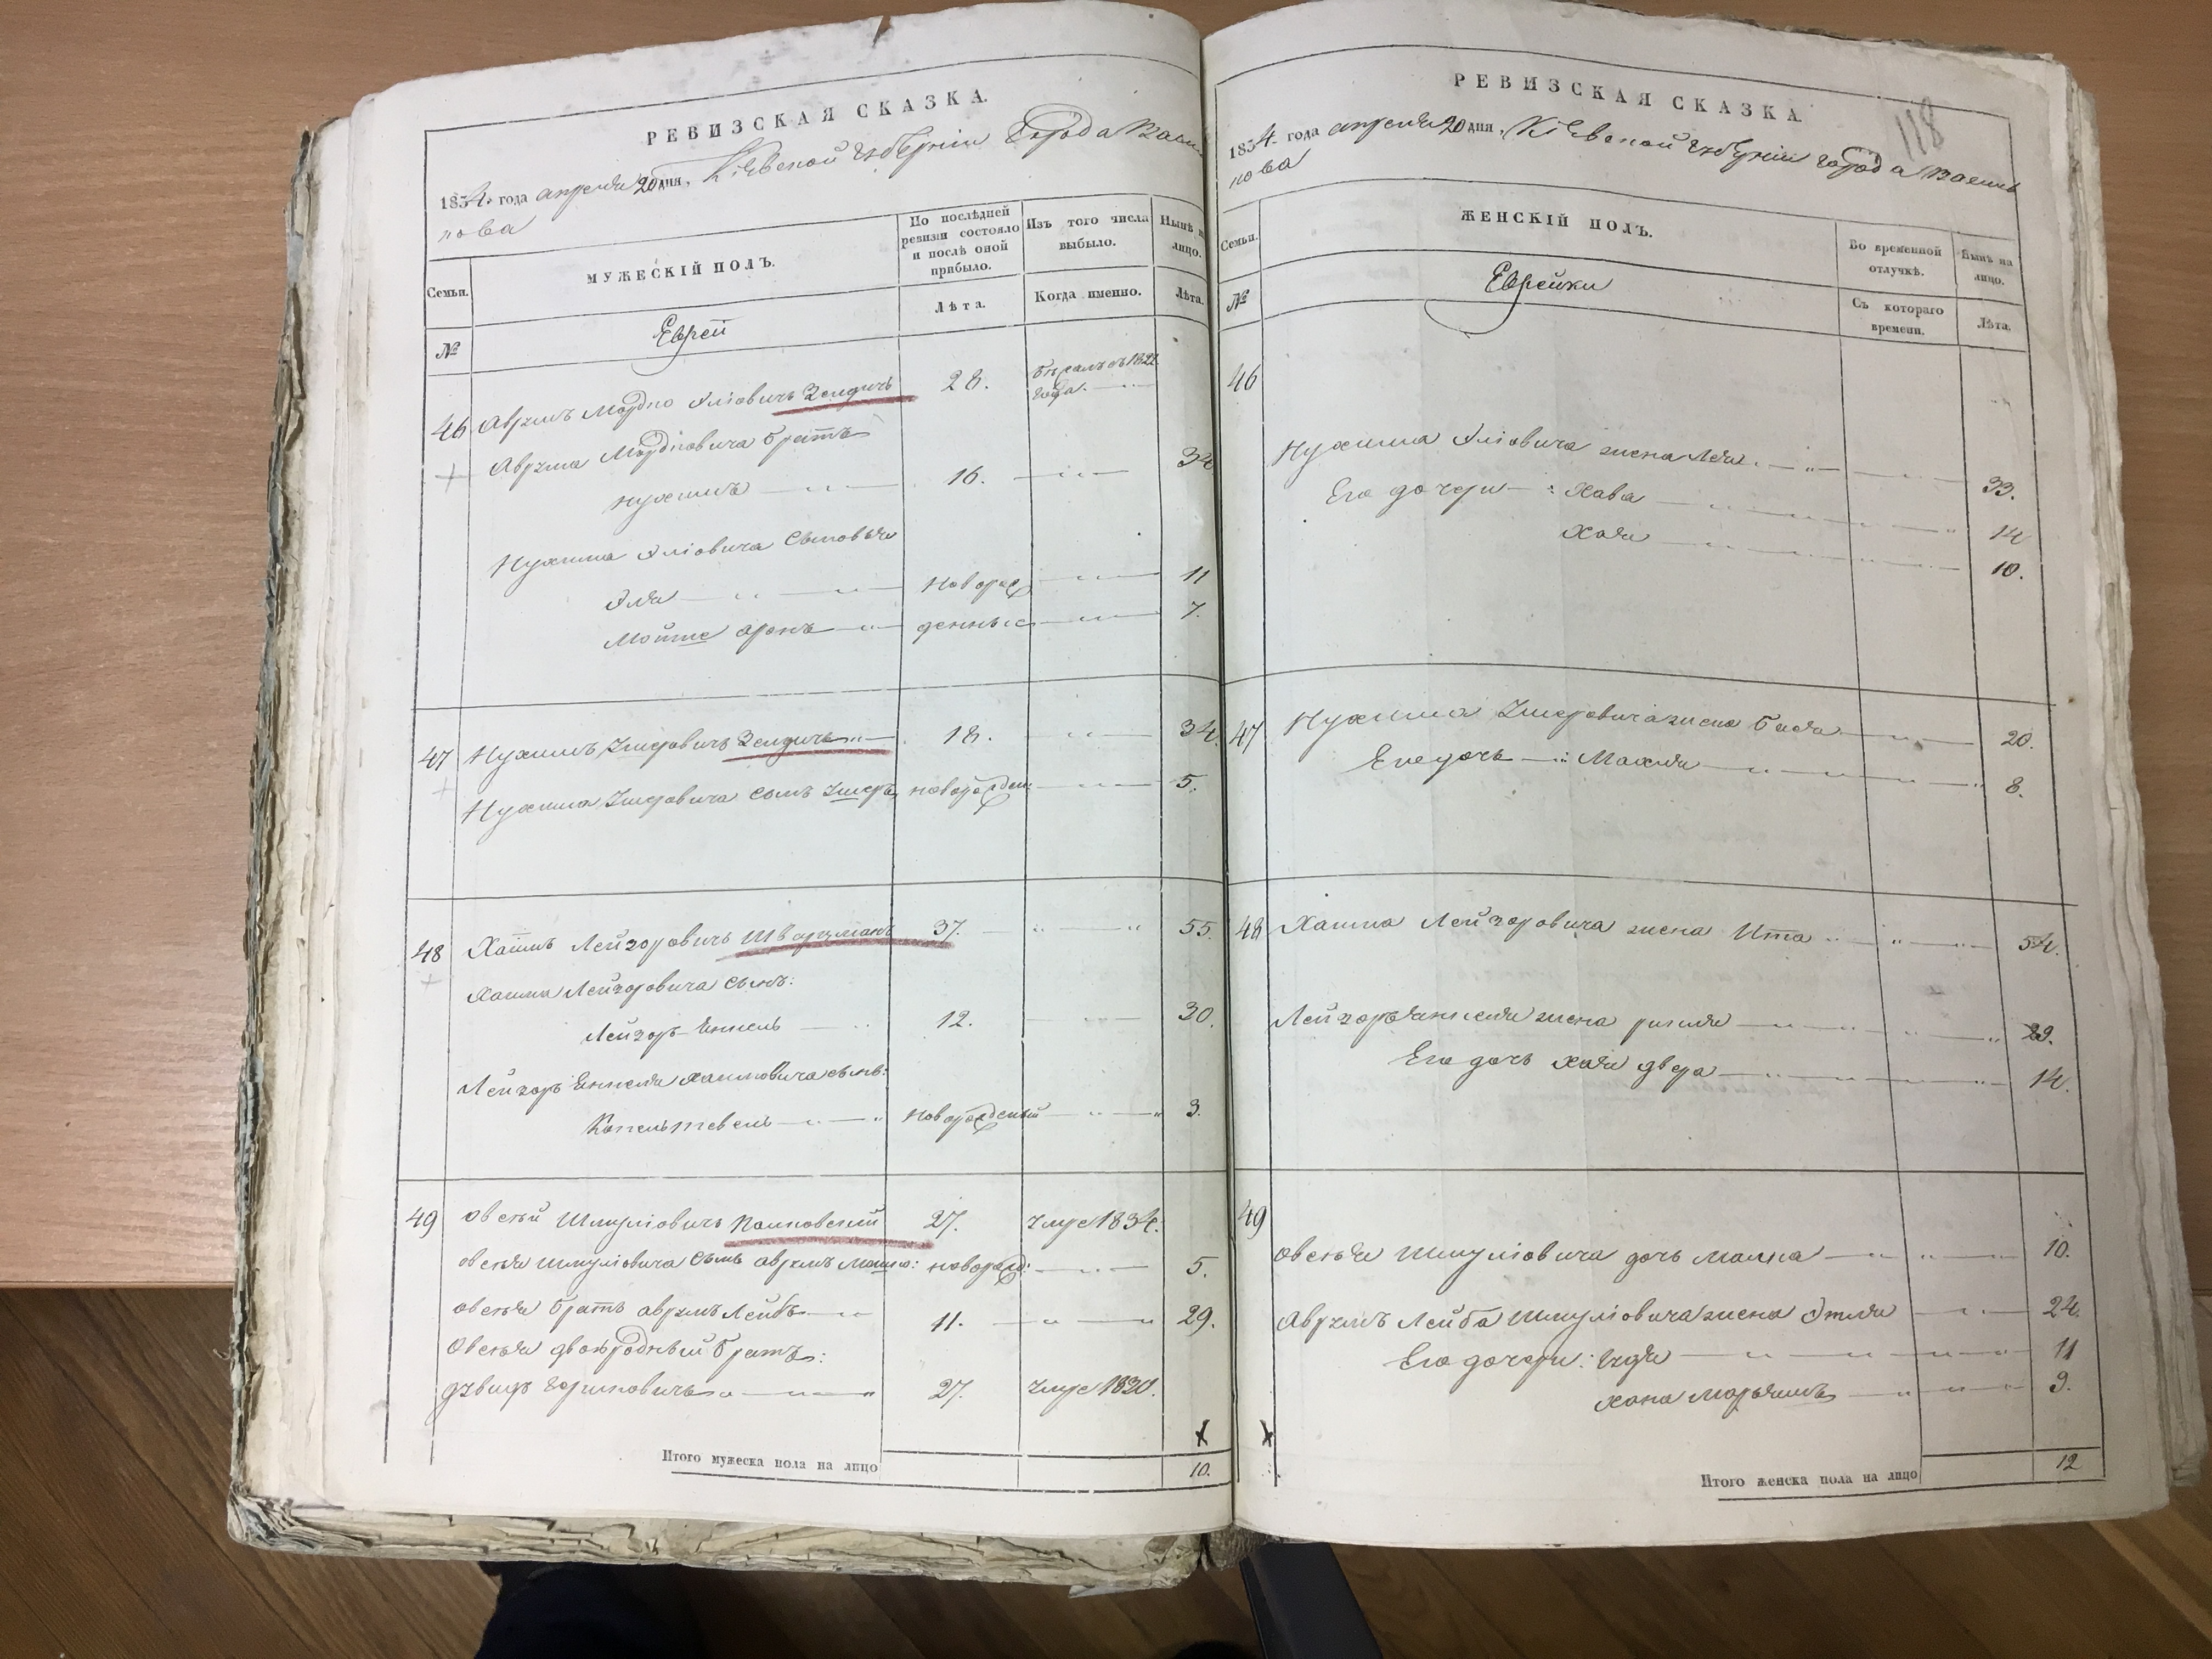 РЕВИЗСКАЯ СКАЗКА.
1834. года апреля 20 дня, Кіевской губерніи Города Васил
кова
Семьи.
МУЖЕСКІЙ ПОЛЪ.
По послѣдней ревизіи состояло и послѣ оной прибыло.
Изъ того числа выбыло.
Нынѣ на лицо.
№
Еврей
Лѣта.
Когда именно.
Лѣта.
46 Аврумъ Мордко Эліовичъ Зейдичъ 28. 1822 года.
Аврума Мордковича братъ
Нухимъ 16. 34
Нухима Эліовича сыновья
Эля новорож 11
Мойше Аронъ денные 7.
47 Нухимъ Ушеровичъ Зейдичъ 18. 34.
Нухима Ушеровича сынъ Ушеръ новорожден 5.
48 Хаимъ Лейзоровичъ Шварцманъ 37. 55.
Хаима Лейзоровича сынъ:
Лейзоръ Енкель 12. 30.
Лейзоръ Енкеля Хаимовича сынъ:
Копель Тевель новорожденый 3.
49 Овсѣй Шмуліовичъ 27. умре 1834.
Овсѣя Шмуліовича сынъ Аврумъ новорожд: 5.
Овсѣя братъ Аврумъ Лейбъ 11. 29.
Овсѣя двоюродный братъ:
Дувидъ Гершковичъ 27. умре 1820.
Итого мужеска пола на лицо 10.
118
РЕВИЗСКАЯ СКАЗКА.
1834. года апреля 20 дня, Кіевской губерніи города Василь
кова
Семьи.
ЖЕНСКІЙ ПОЛЪ.
Во временной отлучкѣ.
Нынѣ на лицо.
№
Еврейки
Съ котораго времени.
Лѣта.
46
Нухима Эліовича жена Лея 33.
Его дочери: Хава 14
Хая 10.
47 Нухима Ушеровича жена Бася 20.
Его дочь Махля 8.
48 Хаима Лейзоровича жена Ита 54.
Лейзоръ Янкеля жена 29.
Его дочь Хая Двера 14.
49
Овсѣя Шмуліовича дочь Малка 10.
Аврумъ Лейба Шмуліовича жена Этля 24.
Его дочери: 11
Хана Марьямъ 9.
Итого женска пола на лицо 12